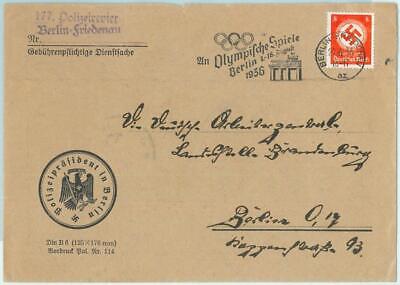 177. Polizeirevier
Berlin-Friedenau
Nr.
Gebührenpflichtige Dienstsache
An
Olympische Spiele
Berlin 1.-16. August
1936
BERLIN
az
Deutsches Reich
Die Deutsche Arbeiterzentrale,
Landesstelle Brandenburg
Berlin O, 17
Polizeipräsident in Berlin
Din B 6 (125×176 mm)
Vordruck Pol. Nr. 114